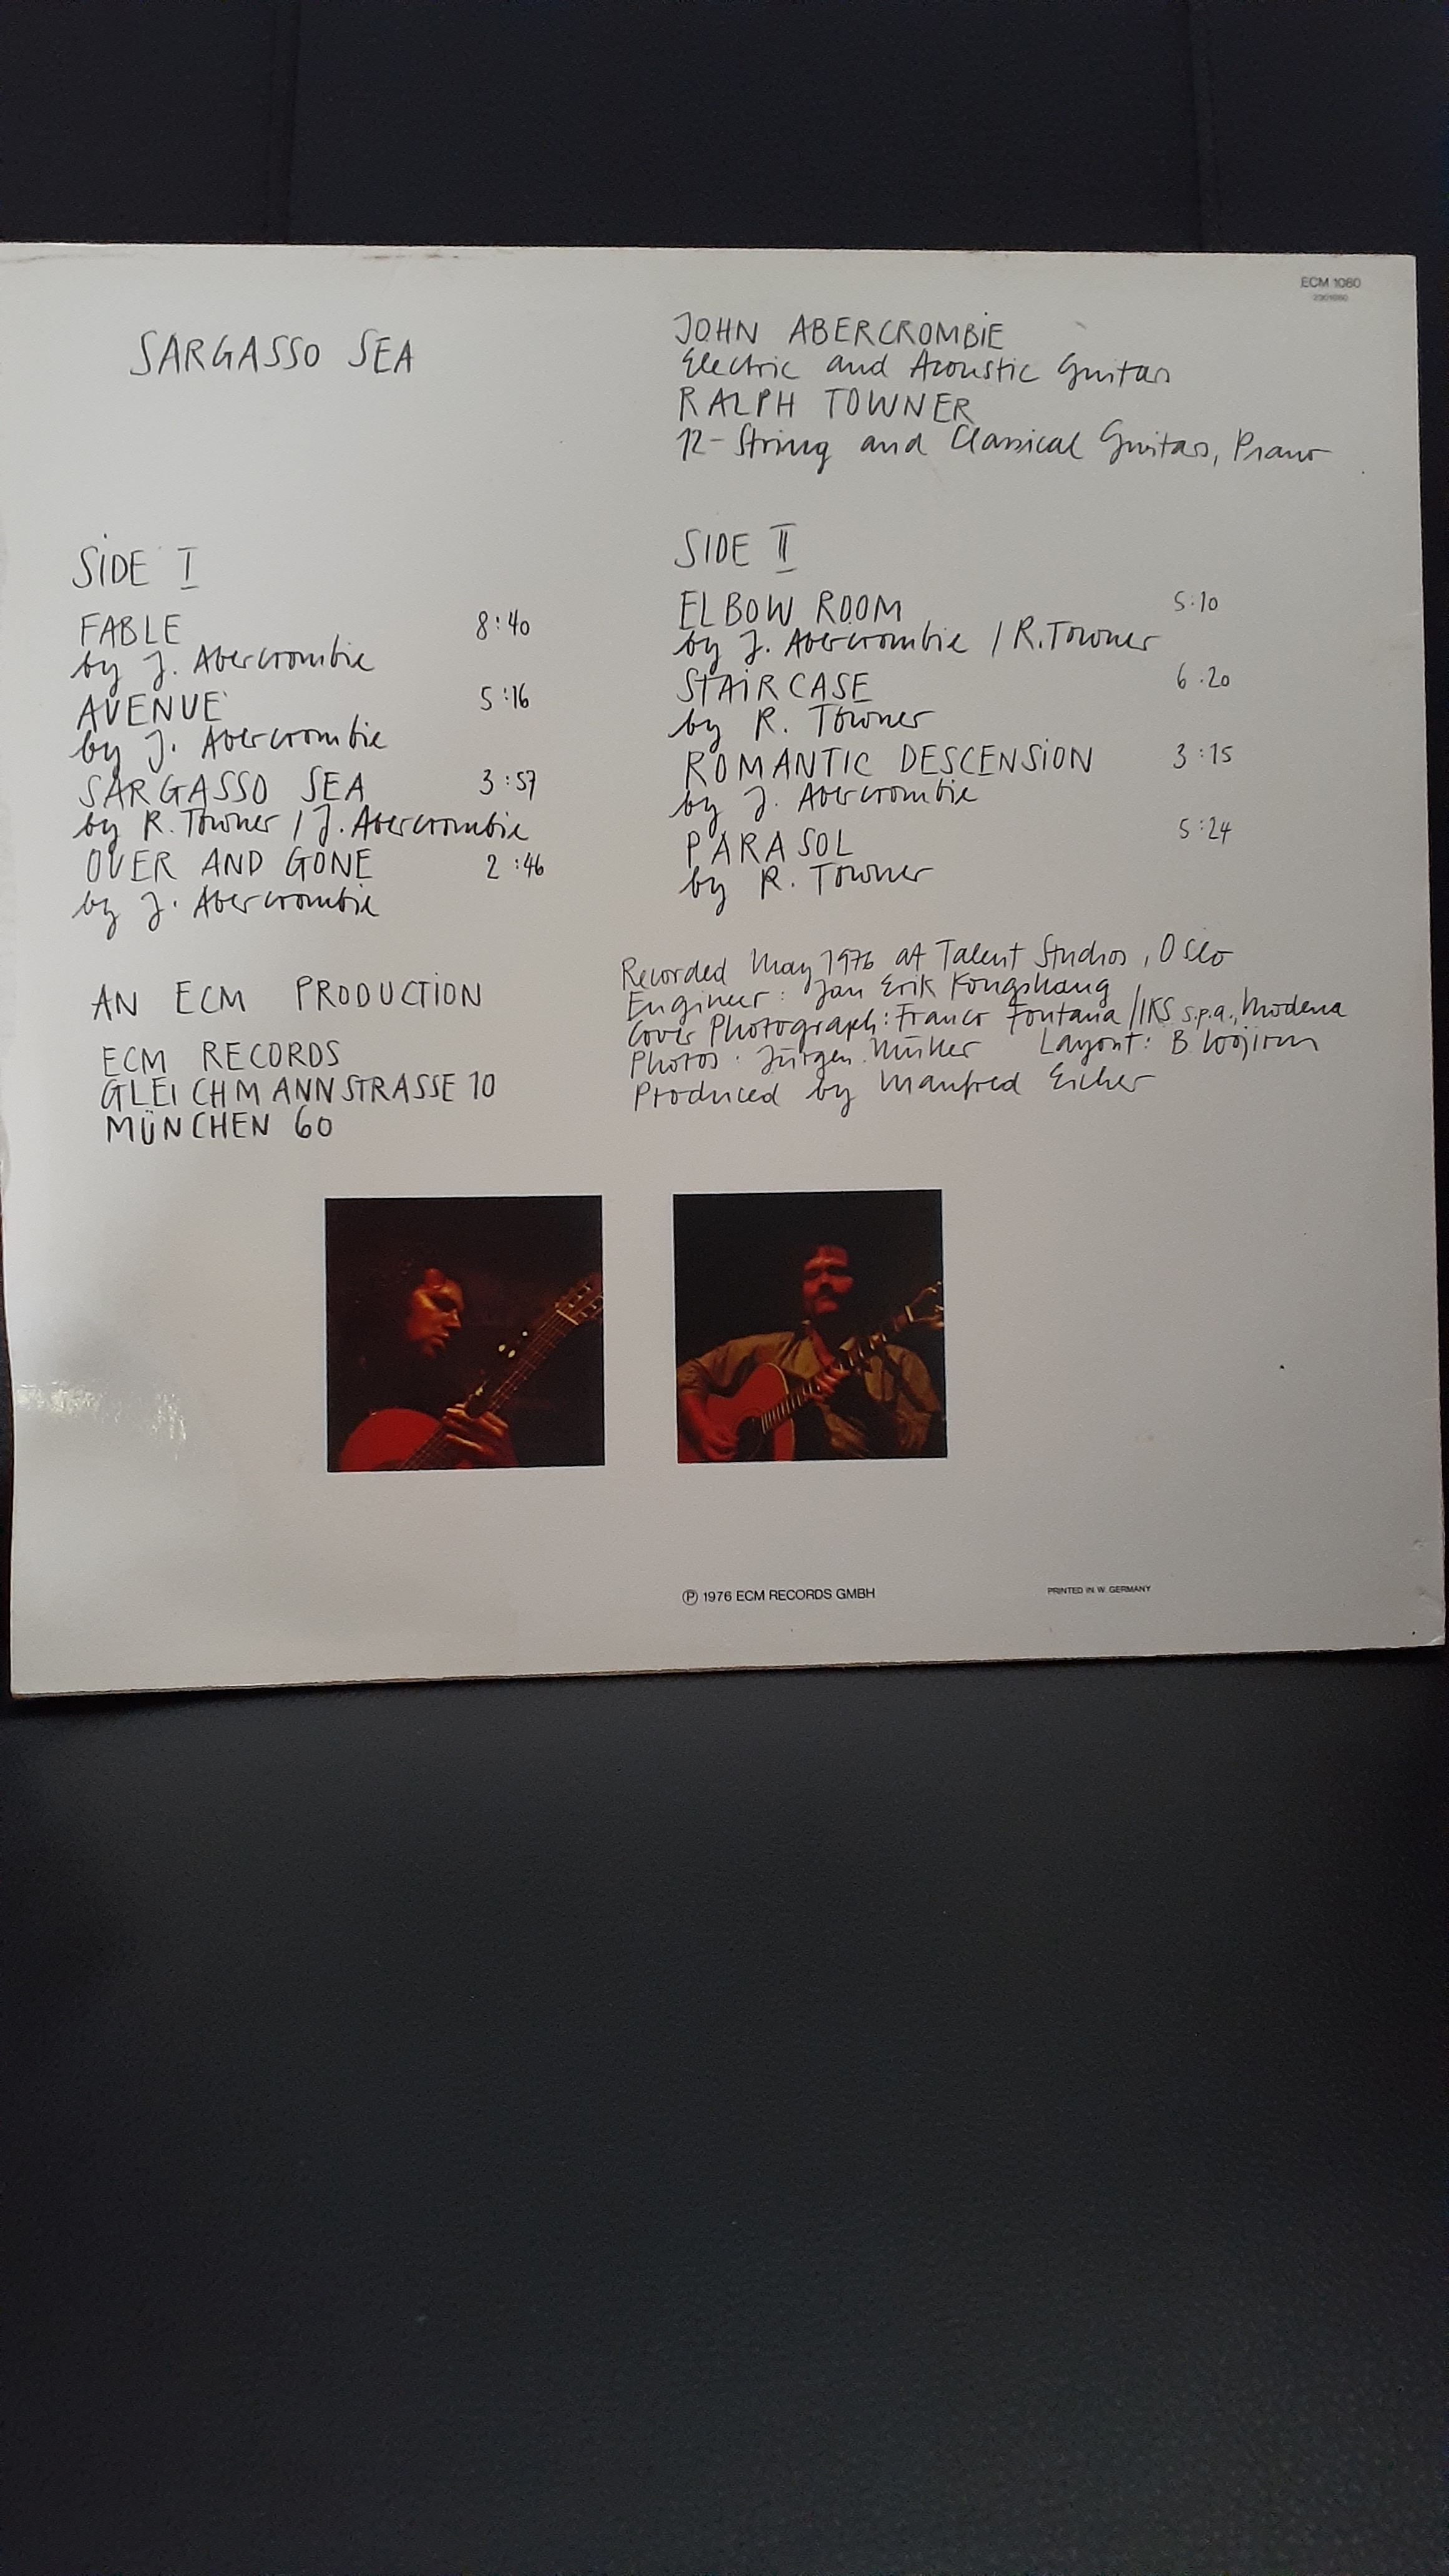 ECM 1060
2301060
SARGASSO SEA
JOHN ABERCROMBIE
Electric and Acoustic Guitars
RALPH TOWNER
12-String and Classical Guitars, Piano
SIDE I
FABLE 8:40
by J. Abercrombie
AVENUE 5:16
by J. Abercrombie
SARGASSO SEA 3:57
by R. Towner / J. Abercrombie
OVER AND GONE 2:46
by J. Abercrombie
SIDE II
ELBOW ROOM 5:10
by J. Abercrombie / R. Towner
STAIRCASE 6.20
by R. Towner
ROMANTIC DESCENSION 3:15
by J. Abercrombie
PARASOL 5:24
by R. Towner
AN ECM PRODUCTION
ECM RECORDS
GLEICHMANNSTRASSE 10
MÜNCHEN 60
Recorded May 1976 at Talent Studios, Oslo
Engineer: Jan Erik Kongshaug
Cover Photograph: Franco Fontana / IKS s.p.a., Modena
Photos: Jürgen Müller Layout: B. Wojirsch
Produced by Manfred Eicher
℗ 1976 ECM RECORDS GMBH
PRINTED IN W. GERMANY